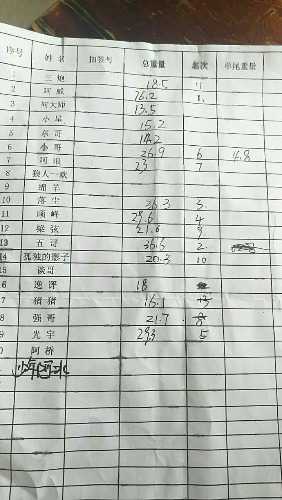 序号 姓名 抽签号 总重量 名次 单尾重量
1 三炮 18.5 11
2 阿威 76.2 1
3 阿大帅 13.5
4 小星 15.2
5 东哥 14.2
6 小哥 26.9 6 4.8
7 阿浪 23 7
8 独人一歌
9 绵羊
10 落尘 36.3 3
11 顶峰 29.6 4
12 梁弦 21.6 9
13 五哥 36.6 2
14 孤独的影子 20.3 10
15 谈哥
6 逸泽 18
7 猪猪 16.1 13
8 强哥 21.7 8
9 光宇 29.3 5
0 阿桥
少年